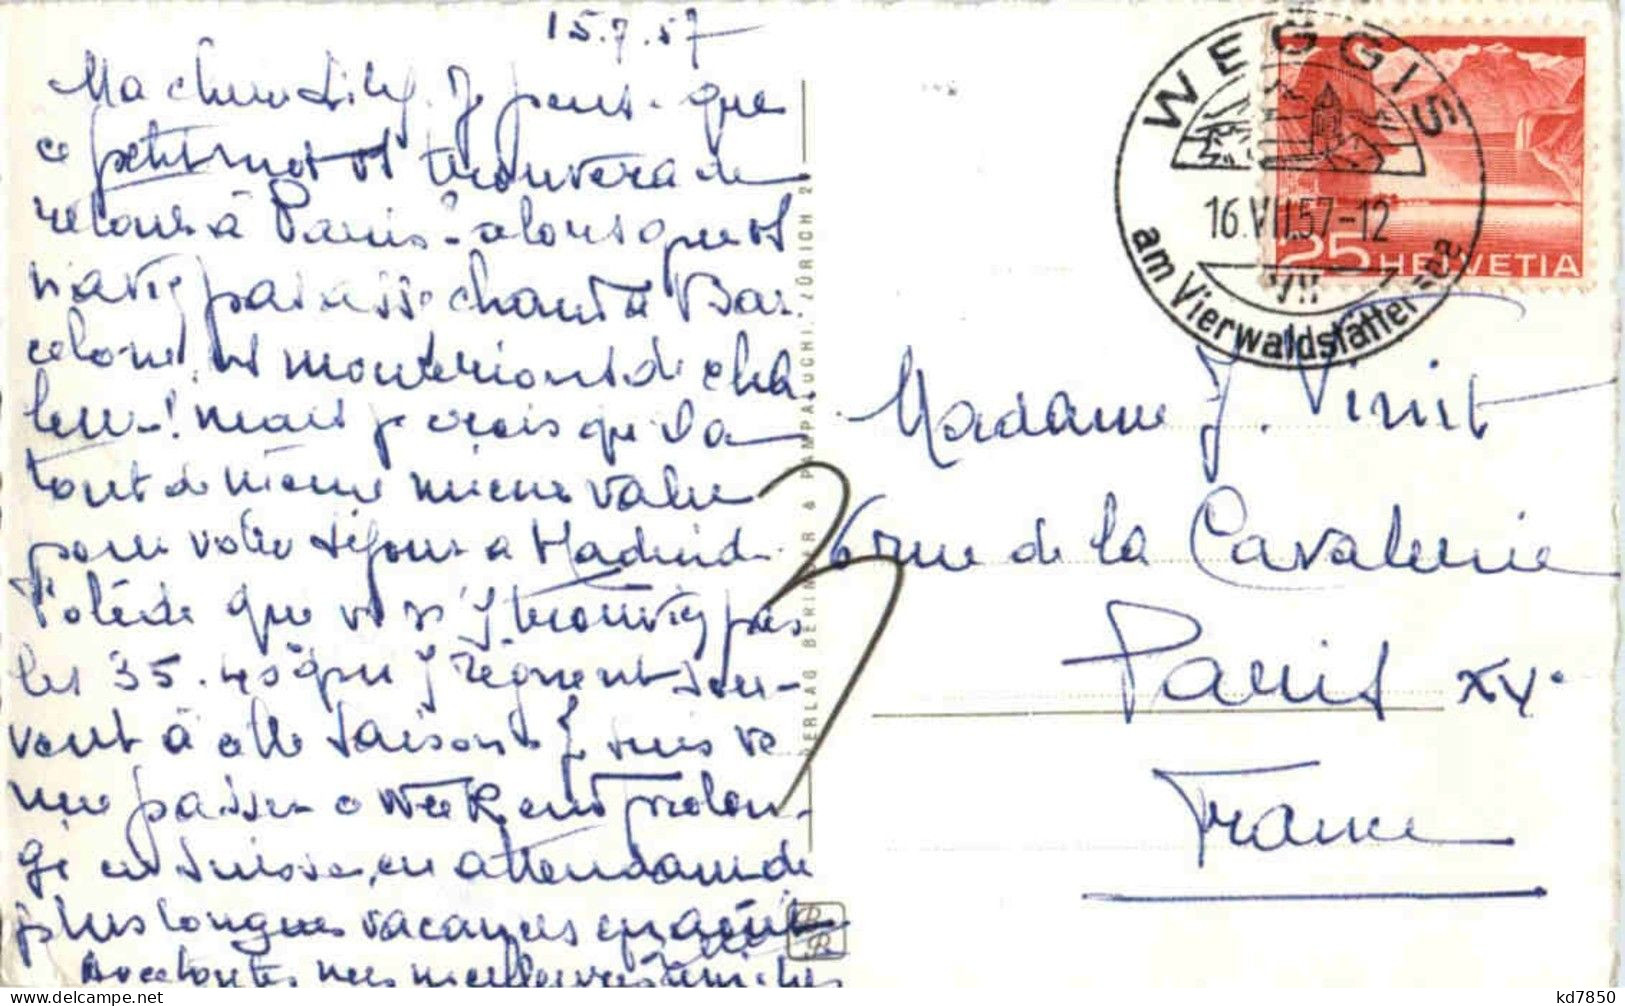 15.7.57
Ma chère Lily. Je pense que
ce petit mot vs trouvera de
retour à Paris - alors que vs
n'avez pas assez chaud à Bar-
celone, vs mourions de cha
leur -! mais je crois que cela
tout de même mieux valu
pour votre séjour à Madrid
Tolède que vs n'y trouviez pas
les 35. 40° qui y règnent sou-
vent à cette saison. Je suis ve
nue passer ce Week end prolon-
gé en Suisse, en attendant de
plus longues vacances en août
Avec toutes mes meilleures amitiés
VERLAG BERINGER & PAMPALUCHI. ZÜRICH 2
WEGGIS
16.VII.57-12
am Vierwaldstättersee
25 HELVETIA
Madame J. Vinit
6 rue de la Cavalerie
Paris XV°
France
kd7850